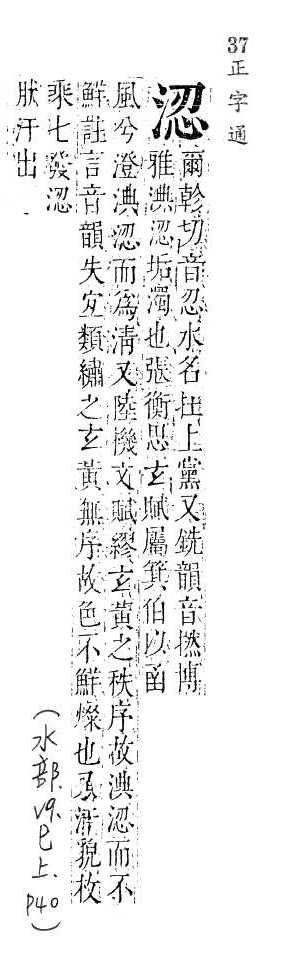 37
正字通
淴
爾軫切音忍水名在上黨又銑韻音撚博
雅淟涊垢濁也張衡思玄賦屬箕伯以函
風兮澄淟涊而為清又陸機文賦繆玄黃之秩序故淟涊而不
鮮註言音韻失宜類繡之玄黃無序故色不鮮燦也又濡貌枚
乘七發涊
肰汗出
(水部.19.巳上.P40)